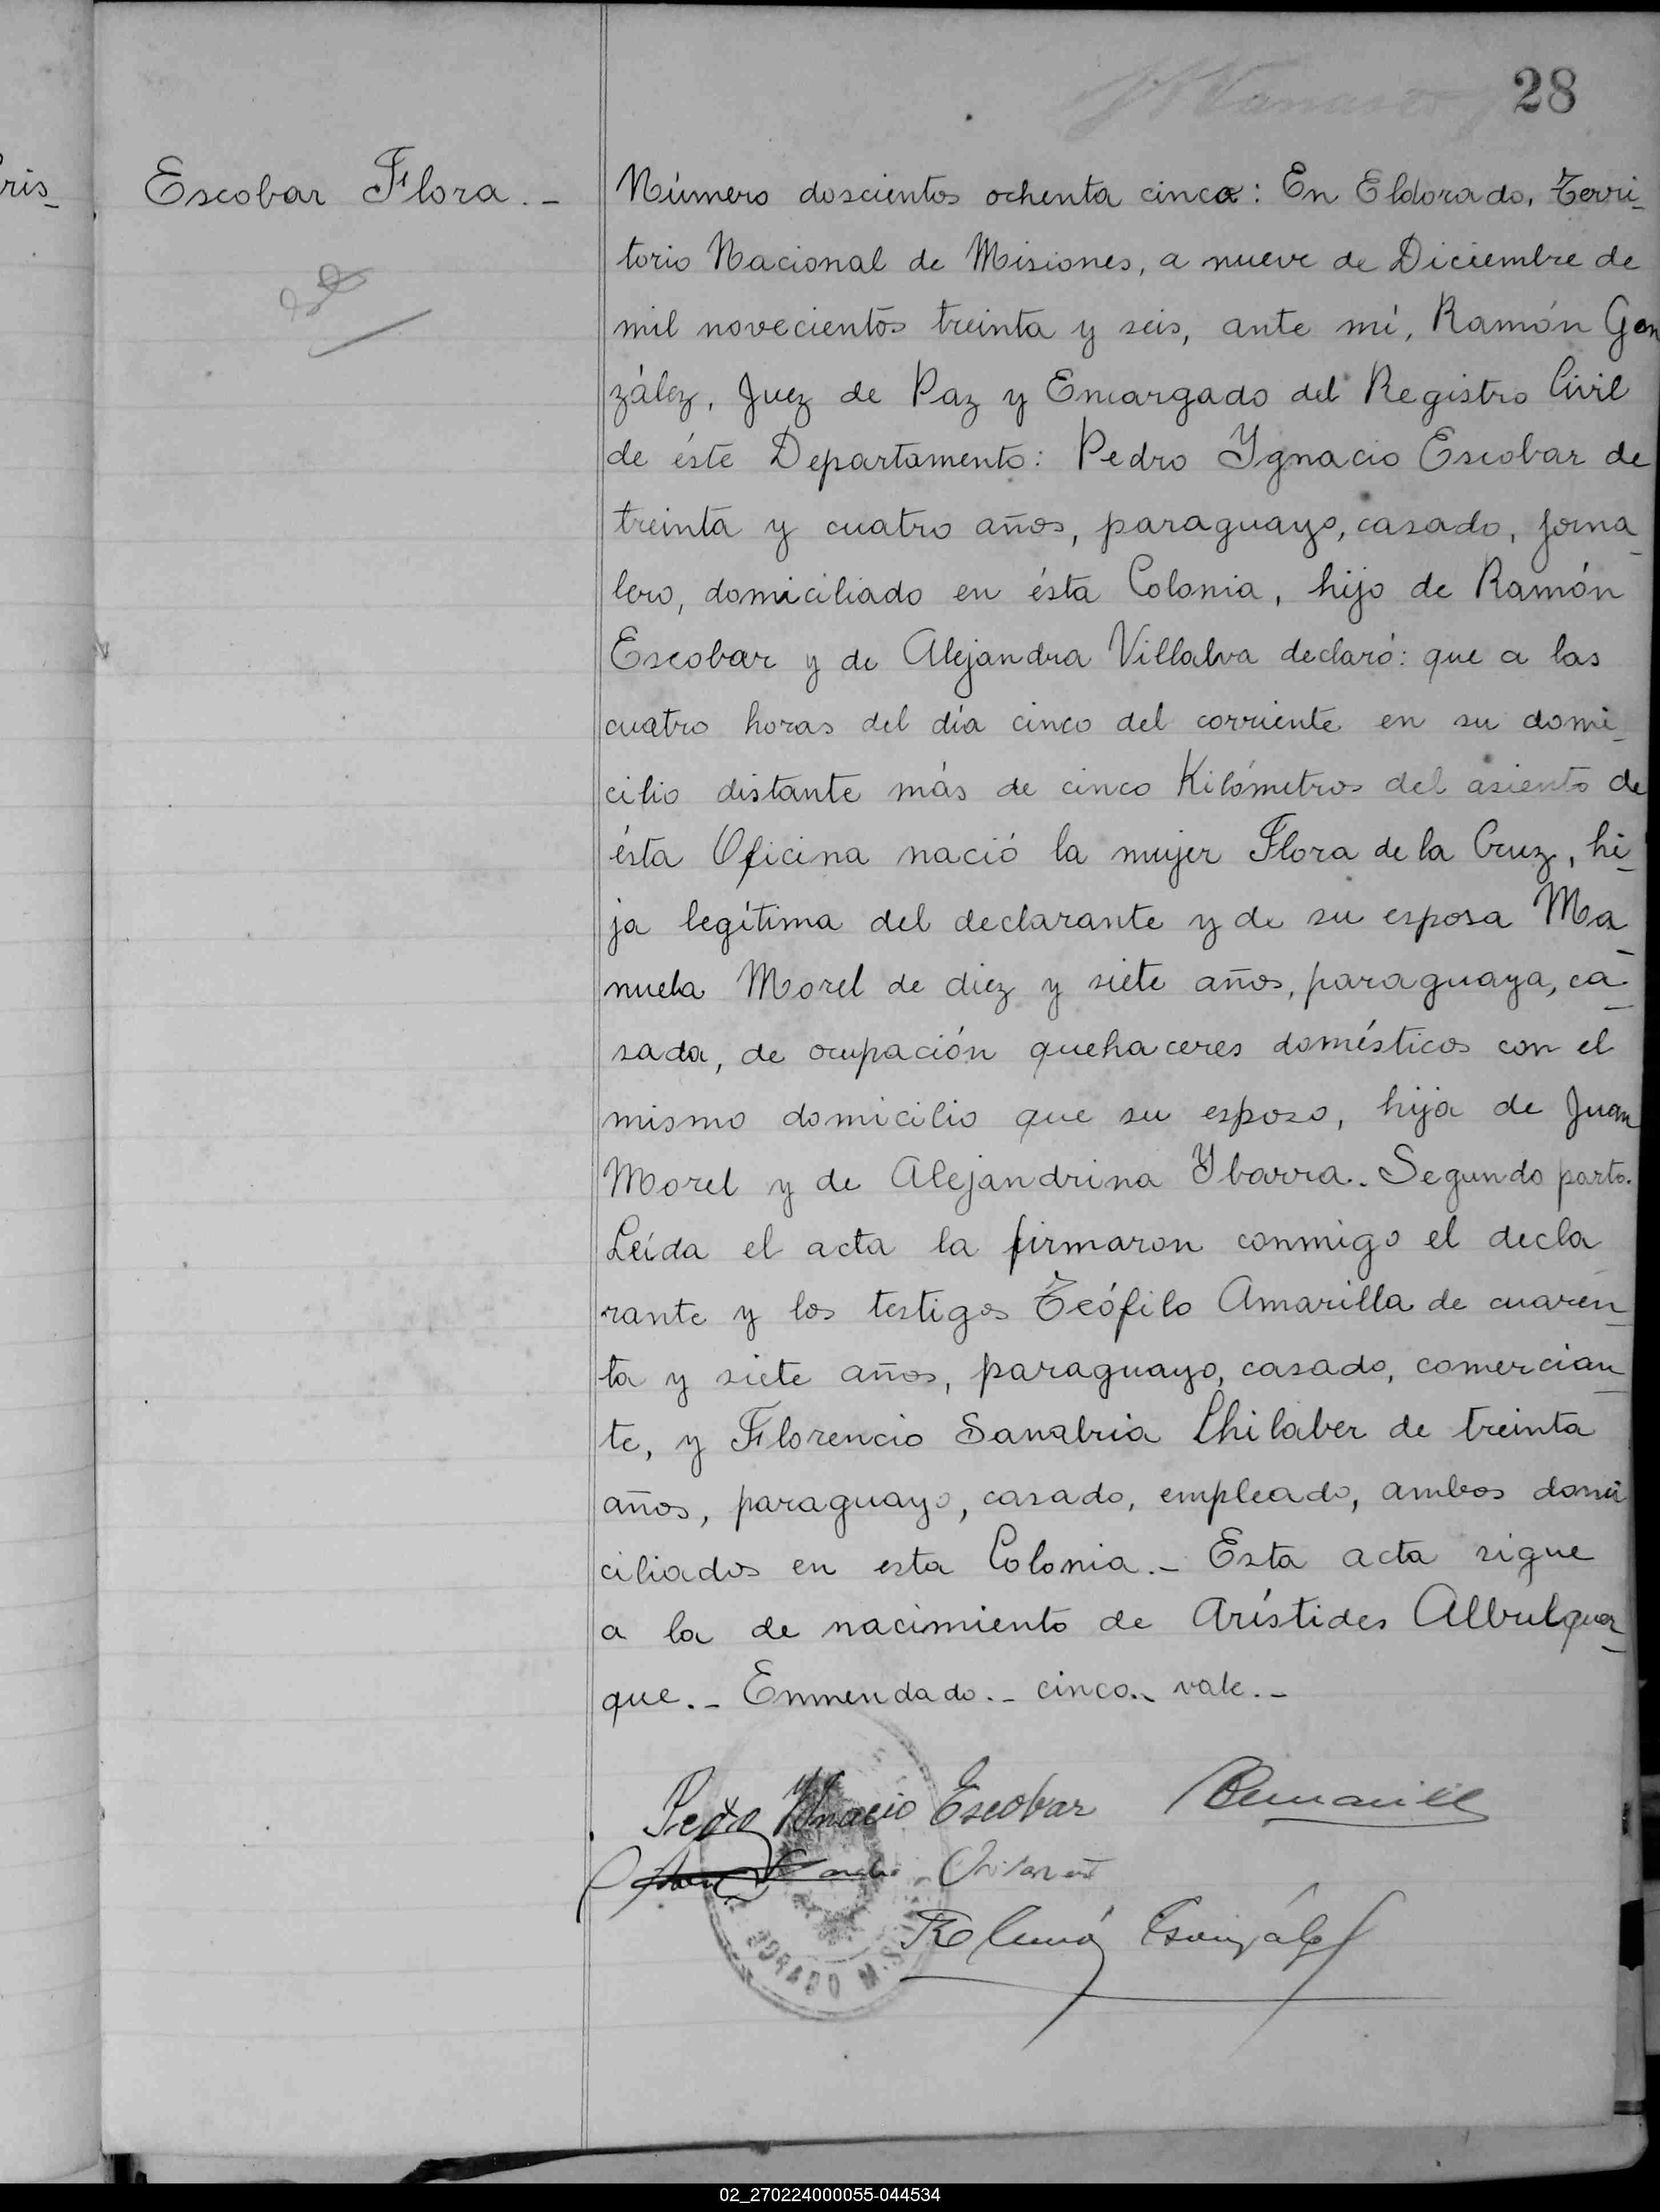 28
ris_
Escobar Flora._
Número doscientos ochenta cinco: En Eldorado, Terri_
torio Nacional de Misiones, a nueve de Diciembre de
mil novecientos treinta y seis, ante mí, Ramón Gon
zález, Juez de Paz y Encargado del Registro Civil
de éste Departamento: Pedro Ygnacio Escobar de
treinta y cuatro años, paraguayo, casado, jorna_
lero, domiciliado en ésta Colonia, hijo de Ramón
Escobar y de Alejandra Villalva declaró: que a las
cuatro horas del día cinco del corriente en su domi_
cilio distante más de cinco Kilómetros del asiento de
ésta Oficina nació la mujer Flora de la Cruz, hi_
ja legítima del declarante y de su esposa Ma_
nuela Morel de diez y siete años, paraguaya, ca_
sada, de ocupación quehaceres domésticos con el
mismo domicilio que su esposo, hija de Juan
Morel y de Alejandrina Ybarra._ Segundo parto.
Leída el acta la firmaron conmigo el decla_
rante y los testigos Teófilo Amarilla de cuaren_
ta y siete años, paraguayo, casado, comercian_
te, y Florencio Sanabria Chilaber de treinta
años, paraguayo, casado, empleado, ambos domi
ciliados en esta Colonia._ Esta acta sigue
a la de nacimiento de Arístides Albulquer_
que._ Enmendado._ cinco._ vale._
Pedro Ygnacio Escobar
Ramón González
DORADO
02_270224000055-044534